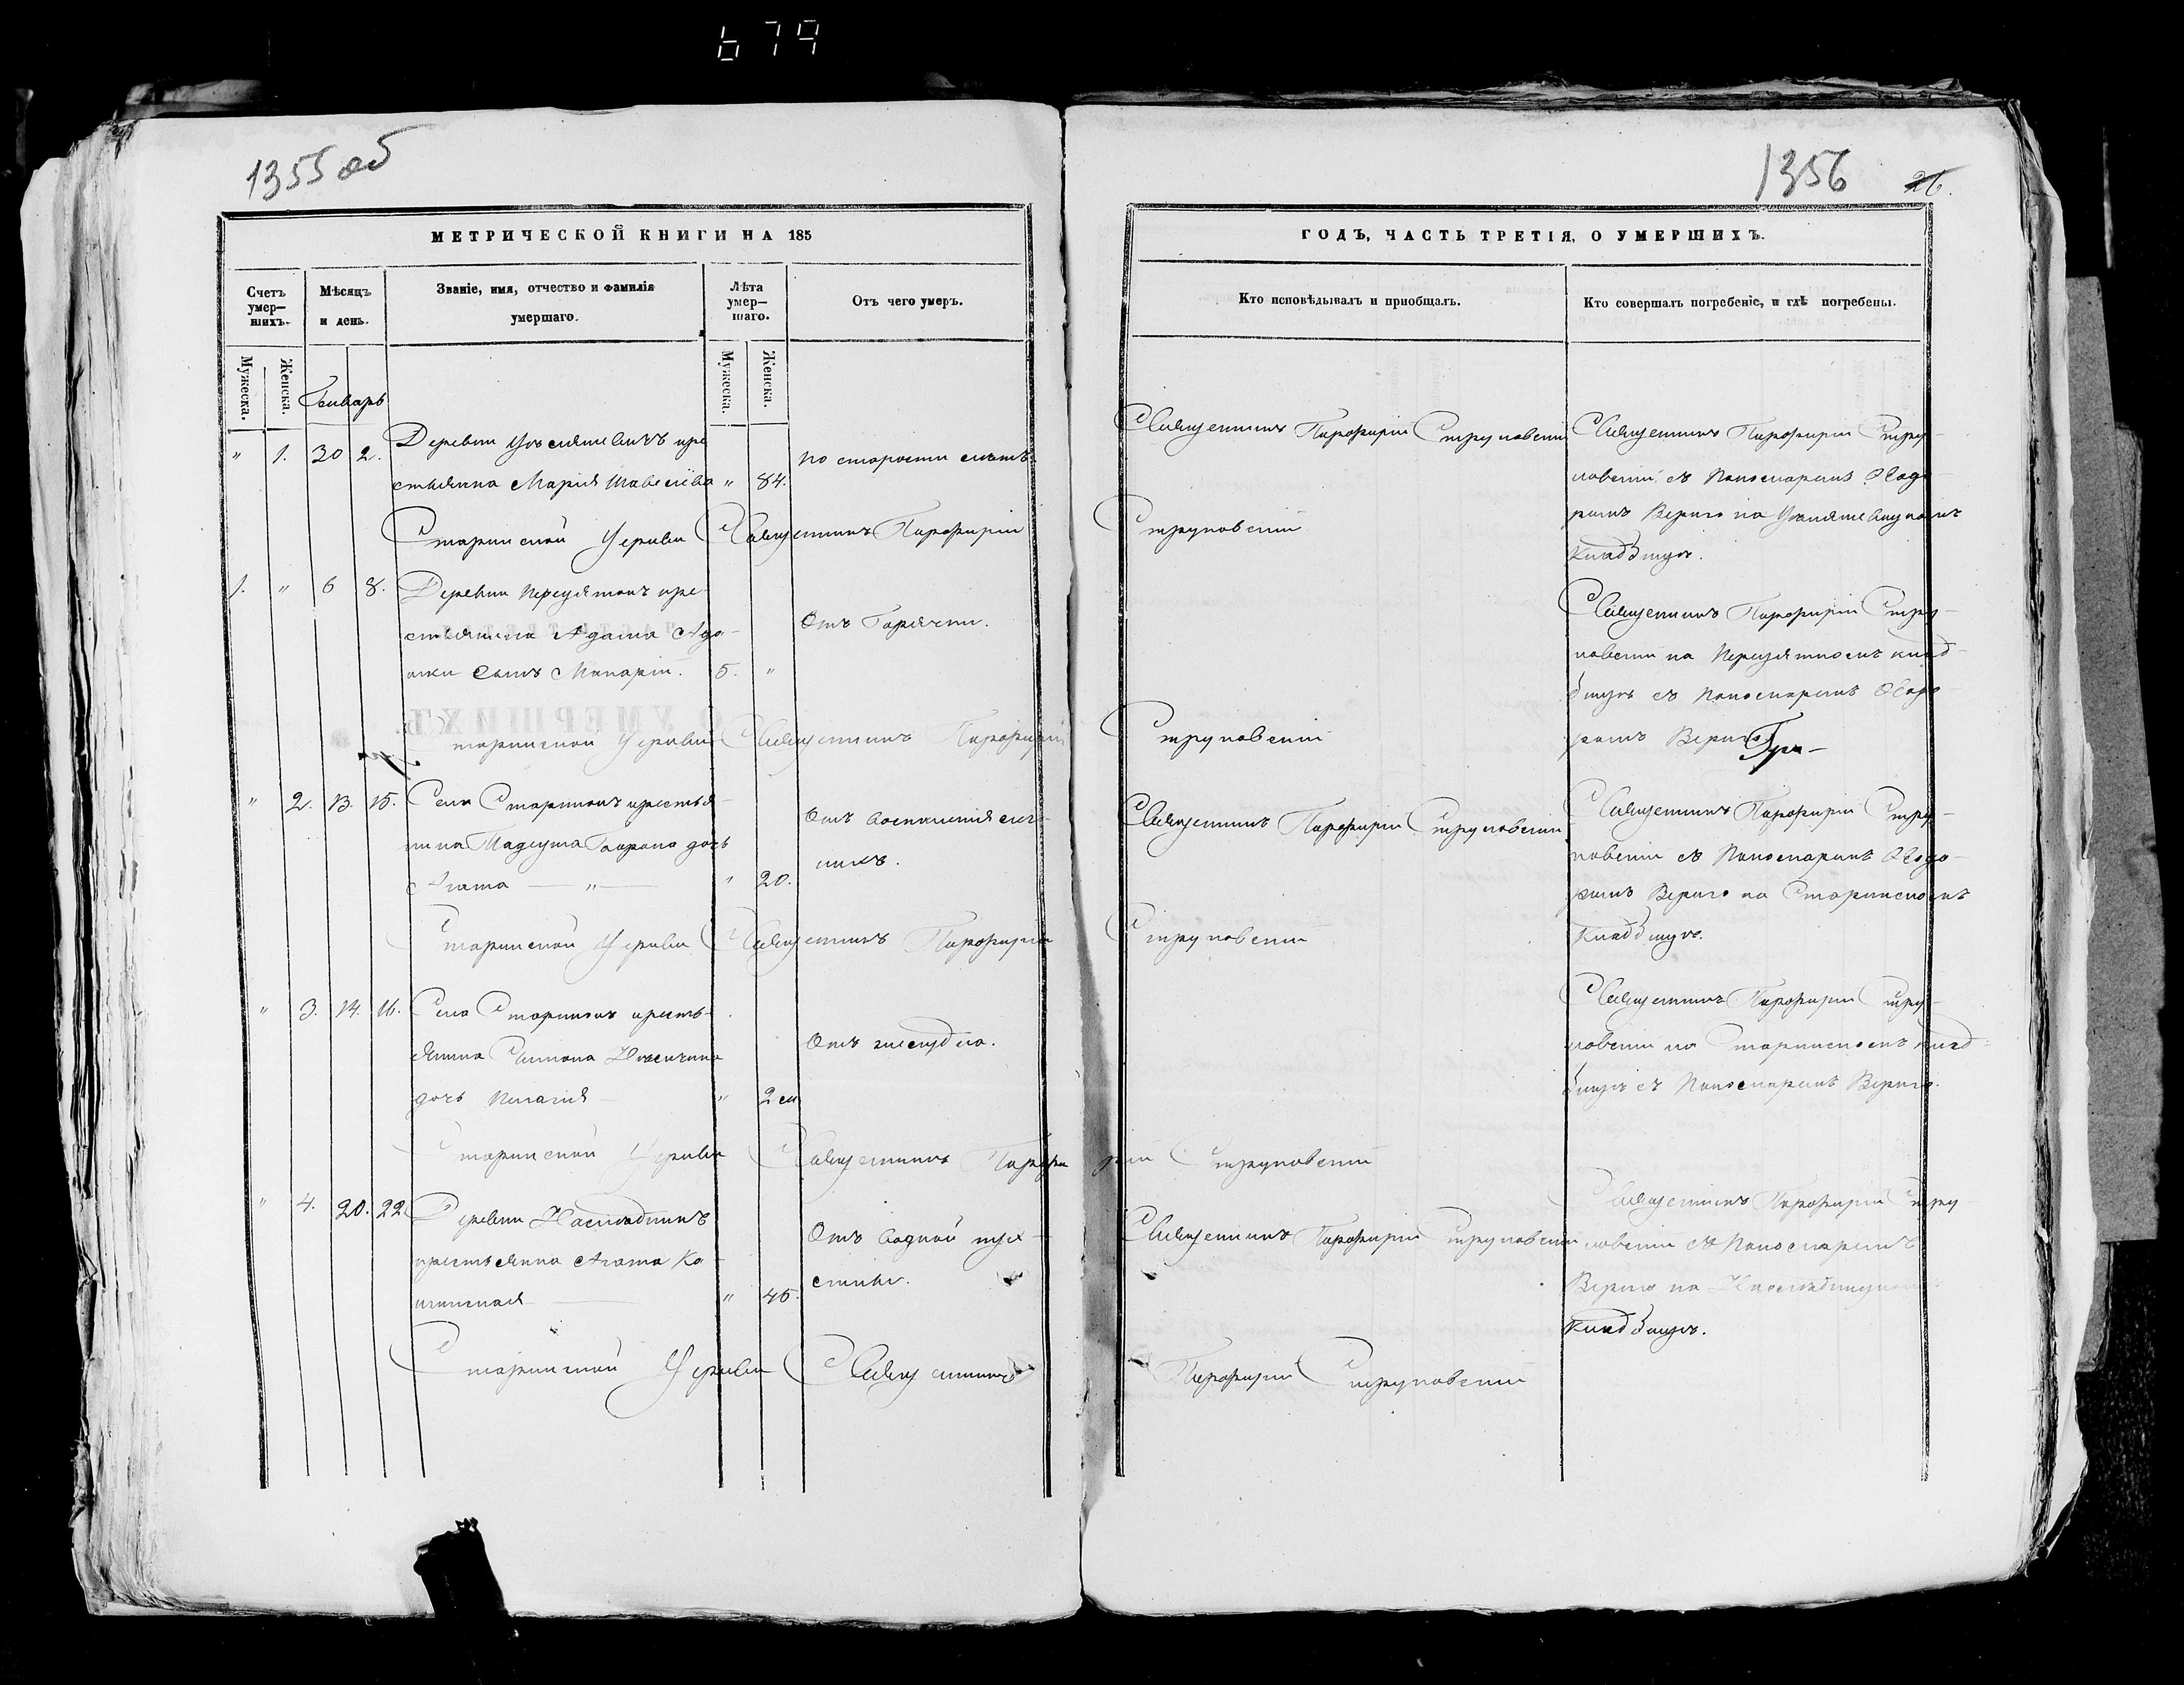 679
1355 об
1356
26.
МЕТРИЧЕСКОЙ КНИГИ НА 185
ГОДЪ, ЧАСТЬ ТРЕТІЯ, О УМЕРШИХЪ.
Счетъ умер-шихъ.
Мѣсяцъ и день.
Званіе, имя, отчество и фамилія умершаго.
Лѣта умер-шаго.
Отъ чего умеръ.
Кто исповѣдывалъ и приобщалъ.
Кто совершалъ погребеніе, и гдѣ погребены.
Мужеска.
Женска.
Мужеска.
Женска.
Генварь
" 1. 30 2. Деревни кре
стьянка Марія " 84.
по старости лѣтъ.
Священникъ Порфирій Струковскій
Священникъ Порфирій Стру-
ковскій съ Пономаремъ Ѳеодо-
ромъ Вериго на
кладбищѣ.
Старинской Церкви Священникъ Порфирій Струковскій
1. " 6 8. Деревни кре-
стьянина Адама
сынъ Макарій. 5. "
Отъ Горячки.
Священникъ Порфирій Стру-
ковскій на клад-
бищѣ съ Пономаремъ Ѳеодо-
ромъ Вериго.
Старинской Церкви Священникъ Порфирій Струковскій
" 2. 13. 15. Села Старинокъ крестья-
нина дочь
Агата — " — " 20.
Отъ воспаленія лег-
кихъ.
Священникъ Порфирій Струковскій
Священникъ Порфирій Стру-
ковскій съ Пономаремъ Ѳеодо-
ромъ Вериго на Старинскомъ
кладбищѣ.
Старинской Церкви Священникъ Порфирій Струковскій
" 3. 14. 16. Села Старинокъ кресть-
янина Симона
дочь Пелагія — " 2 м
Священникъ Порфирій Стру-
ковскій на Старинскомъ клад-
бищѣ съ Пономаремъ Вериго.
Старинской Церкви Священникъ Порфирій Струковскій
" 4. 20. 22. Деревни
крестьянка Агата Ко-
" 45.
Отъ водной пух-
лины.
Священникъ Порфирій Струковскій
Священникъ Порфирій Стру-
ковскій съ Пономаремъ
Вериго на
кладбищѣ.
Старинской Церкви Священникъ Порфирій Струковскій